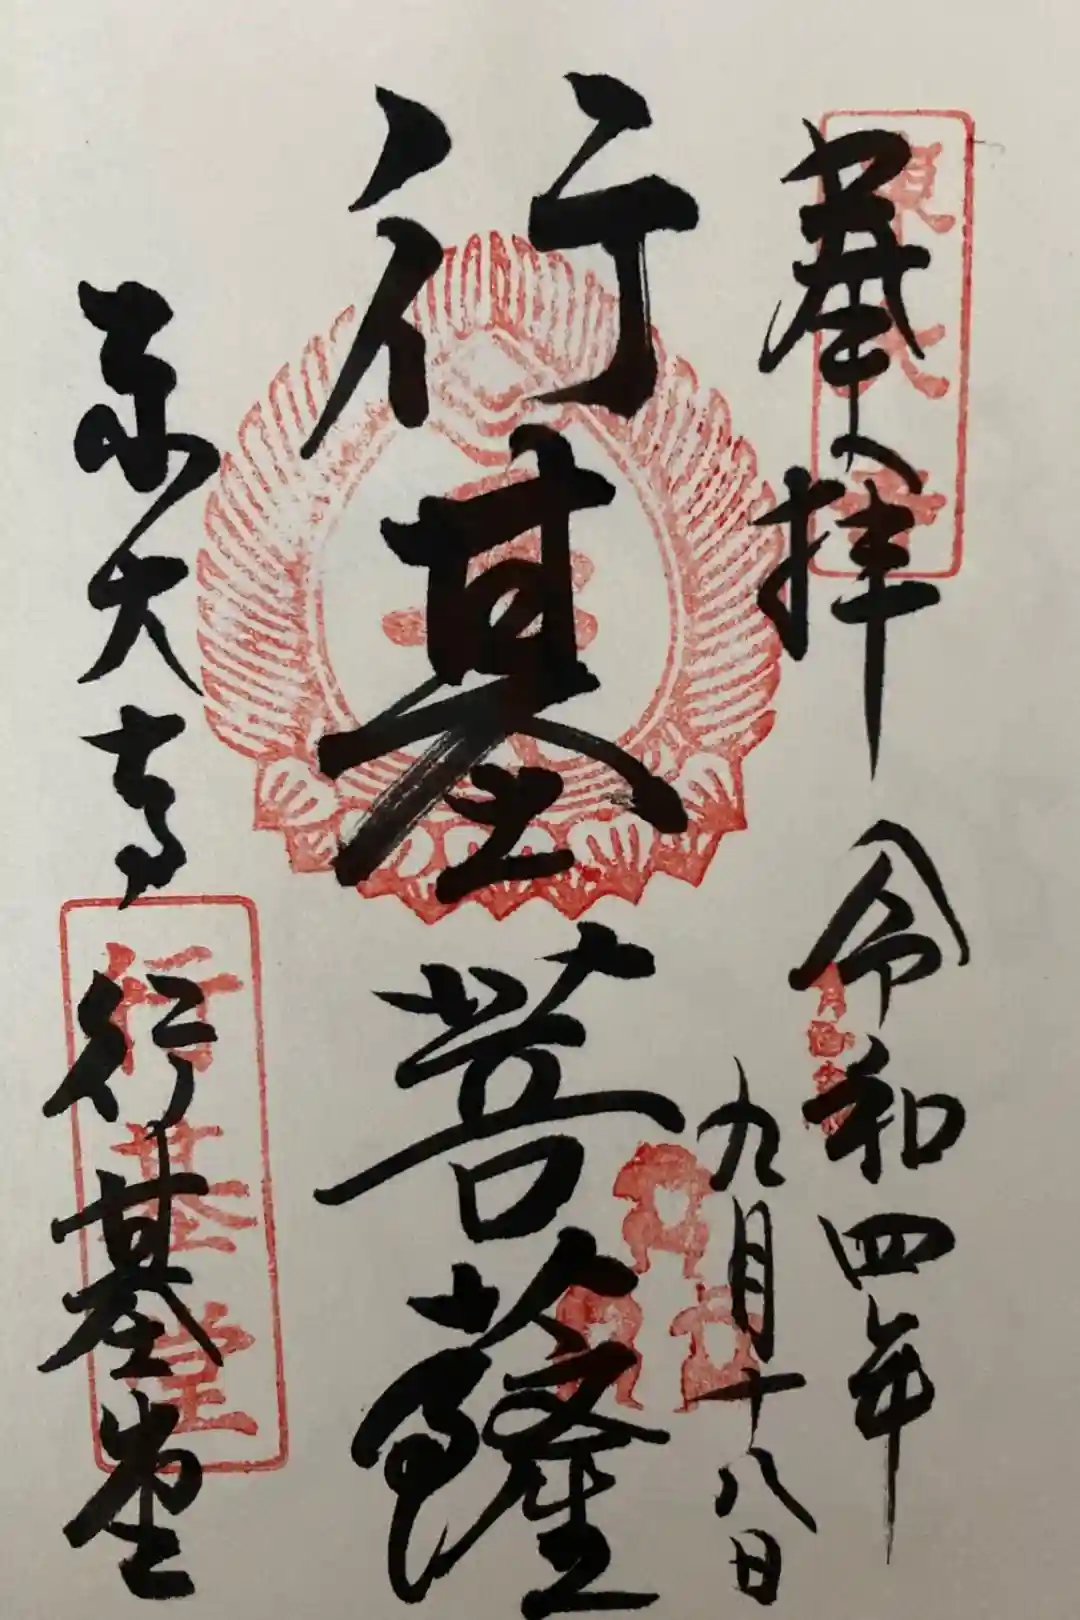 奉拝
令和四年
九月十八日
行基菩薩
東大寺
行基堂
東大寺
行基堂